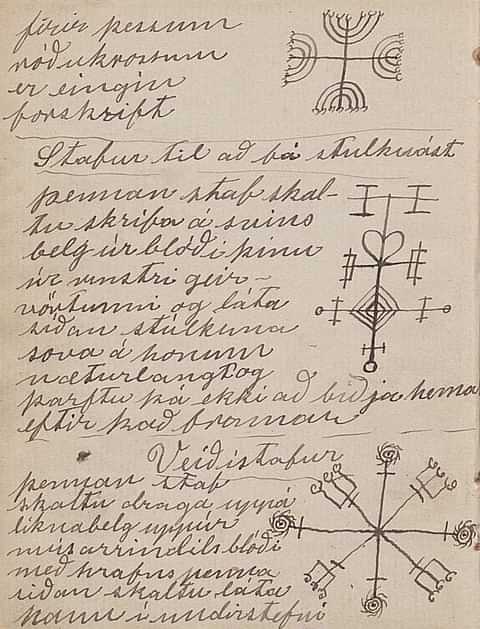 firir þessum
róðukrossum
er eingin
forskrift
Stafur til að fá stúlkuást
þennan staf skal-
tu skrifa á svins
belg úr blóði þínu
úr vinstri geir-
vörtunni og láta
síðan stúlkuna
sova á honum
næturlangt og
þarftu þá ekki að biðja hema
eftir það framar
Veiðistafur
þennan staf
skaltu draga uppá
líknabelg uppur
músarrindilsblóði
með hrafns penna
siðan skaltu láta
hann í undirstefni